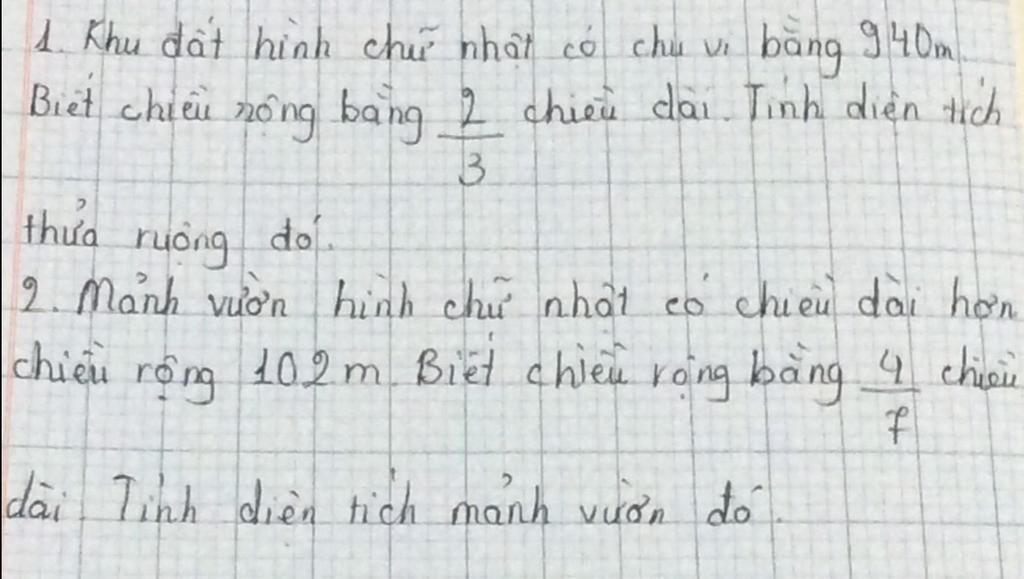 1. Khu đất hình chữ nhật có chu vi bằng 940m.
Biết chiều rộng bằng 2/3 chiều dài. Tính diện tích
thửa ruộng đó.
2. Mảnh vườn hình chữ nhật có chiều dài hơn
chiều rộng 102m. Biết chiều rộng bằng 4/7 chiều
dài. Tính diện tích mảnh vườn đó.